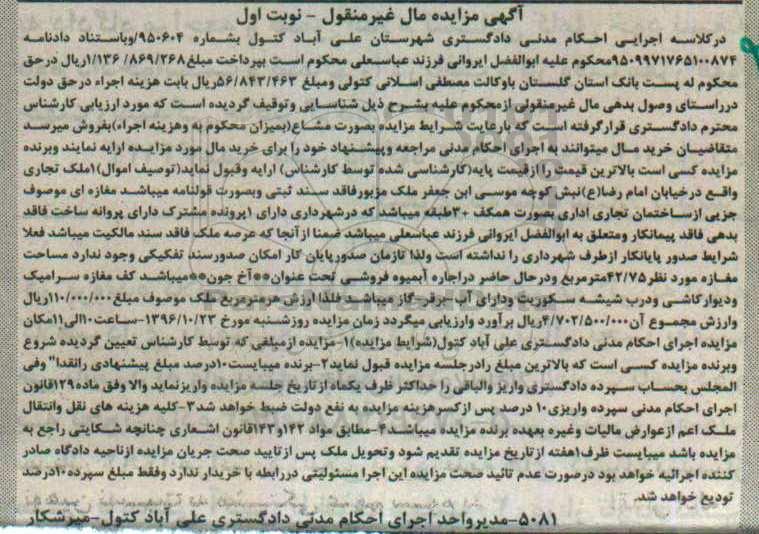 آگهی مزایده مال غیرمنقول - نوبت اول
درکلاسه اجرایی احکام مدنی دادگستری شهرستان علی آباد کتول بشماره ۹۵۰۶۰۴/وباستناد دادنامه
۹۵۰۹۹۷۱۷۶۵۱۰۰۸۷۴محکوم علیه ابوالفضل ایروانی فرزند عباسعلی محکوم است بپرداخت مبلغ۱/۱۳۶ /۸۶۹/۲۶۸ریال درحق
محکوم له پست بانک استان گلستان باوکالت مصطفی اسلانی کتولی ومبلغ ۵۶/۸۴۳/۴۶۳ریال بابت هزینه اجراء درحق دولت
درراستای وصول بدهی مال غیرمنقولی ازمحکوم علیه بشرح ذیل شناسایی وتوقیف گردیده است که مورد ارزیابی کارشناس
محترم دادگستری قرارگرفته است که بارعایت شرایط مزایده بصورت مشاع(بمیزان محکوم به وهزینه اجراء)بفروش میرسد
متقاضیان خرید مال میتوانند به اجرای احکام مدنی مراجعه وپیشنهاد خود را برای خرید مال مورد مزایده ارایه نمایند وبرنده
مزایده کسی است بالاترین قیمت را ازقیمت پایه(کارشناسی شده توسط کارشناس) ارایه وقبول نماید(توصیف اموال)۱ملک تجاری
واقع درخیابان امام رضا(ع)نبش کوچه موسی ابن جعفر ملک مزبورفاقد سند ثبتی وبصورت قولنامه میباشد مغازه ای موصوف
جزیی ازساختمان تجاری اداری بصورت همکف +۳طبقه میباشد که درشهرداری دارای ۱پرونده مشترک دارای پروانه ساخت فاقد
بدهی فاقد پیمانکار ومتعلق به ابوالفضل ایروانی فرزند عباسعلی میباشد ضمنا ازآنجا که عرصه ملک فاقد سند مالکیت میباشد فعلا
شرایط صدور پایانکار ازطرف شهرداری را نداشته است ولذا تازمان صدورپایان کار امکان صدورسند تفکیکی وجود ندارد مساحت
مغازه مورد نظر۴۲/۷۵مترمربع ودرحال حاضر دراجاره آبمیوه فروشی تحت عنوان**آخ جون**میباشد کف مغازه سرامیک
ودیوارکاشی ودرب شیشه سکوریت ودارای آب-برق-گاز میباشد فلذا ارزش هرمترمربع ملک موصوف مبلغ۱۱۰/۰۰۰/۰۰۰ریال
وارزش مجموع آن۴/۷۰۲/۵۰۰/۰۰۰ریال برآورد وارزیابی میگردد زمان مزایده روزشنبه مورخ ۱۳۹۶/۱۰/۲۳-ساعت۱۰الی۱۱مکان
مزایده اجرای احکام مدنی دادگستری علی آباد کتول(شرایط مزایده)۱-مزایده ازمبلغی که توسط کارشناس تعیین گردیده شروع
وبرنده مزایده کسی است که بالاترین مبلغ رادرجلسه مزایده قبول نماید۲-برنده میبایست۱۰درصد مبلغ پیشنهادی رانقدا" وفی
المجلس بحساب سپرده دادگستری واریز والباقی را حداکثر ظرف یکماه ازتاریخ جلسه مزایده واریزنماید والا وفق ماده ۱۲۹قانون
اجرای احکام مدنی سپرده واریزی۱۰ درصد پس ازکسرهزینه مزایده به نفع دولت ضبط خواهد شد۳-کلیه هزینه های نقل وانتقال
ملک اعم ازعوارض مالیات وغیره بعهده برنده مزایده میباشد۴-مطابق مواد ۱۴۲و۱۴۳قانون اشعاری چنانچه شکایتی راجع به
مزایده باشد میبایست ظرف۱هفته ازتاریخ مزایده تقدیم شود وتحویل ملک پس ازتایید صحت جریان مزایده ازناحیه دادگاه صادر
کننده اجرائیه خواهد بود درصورت عدم تائید صحت مزایده این اجرا مسئولیتی دررابطه با خریدار ندارد وفقط مبلغ سپرده۱۰درصد
تودیع خواهد شد.
۵۰۸۱-مدیرواحد اجرای احکام مدنی دادگستری علی آباد کتول-میرشکار